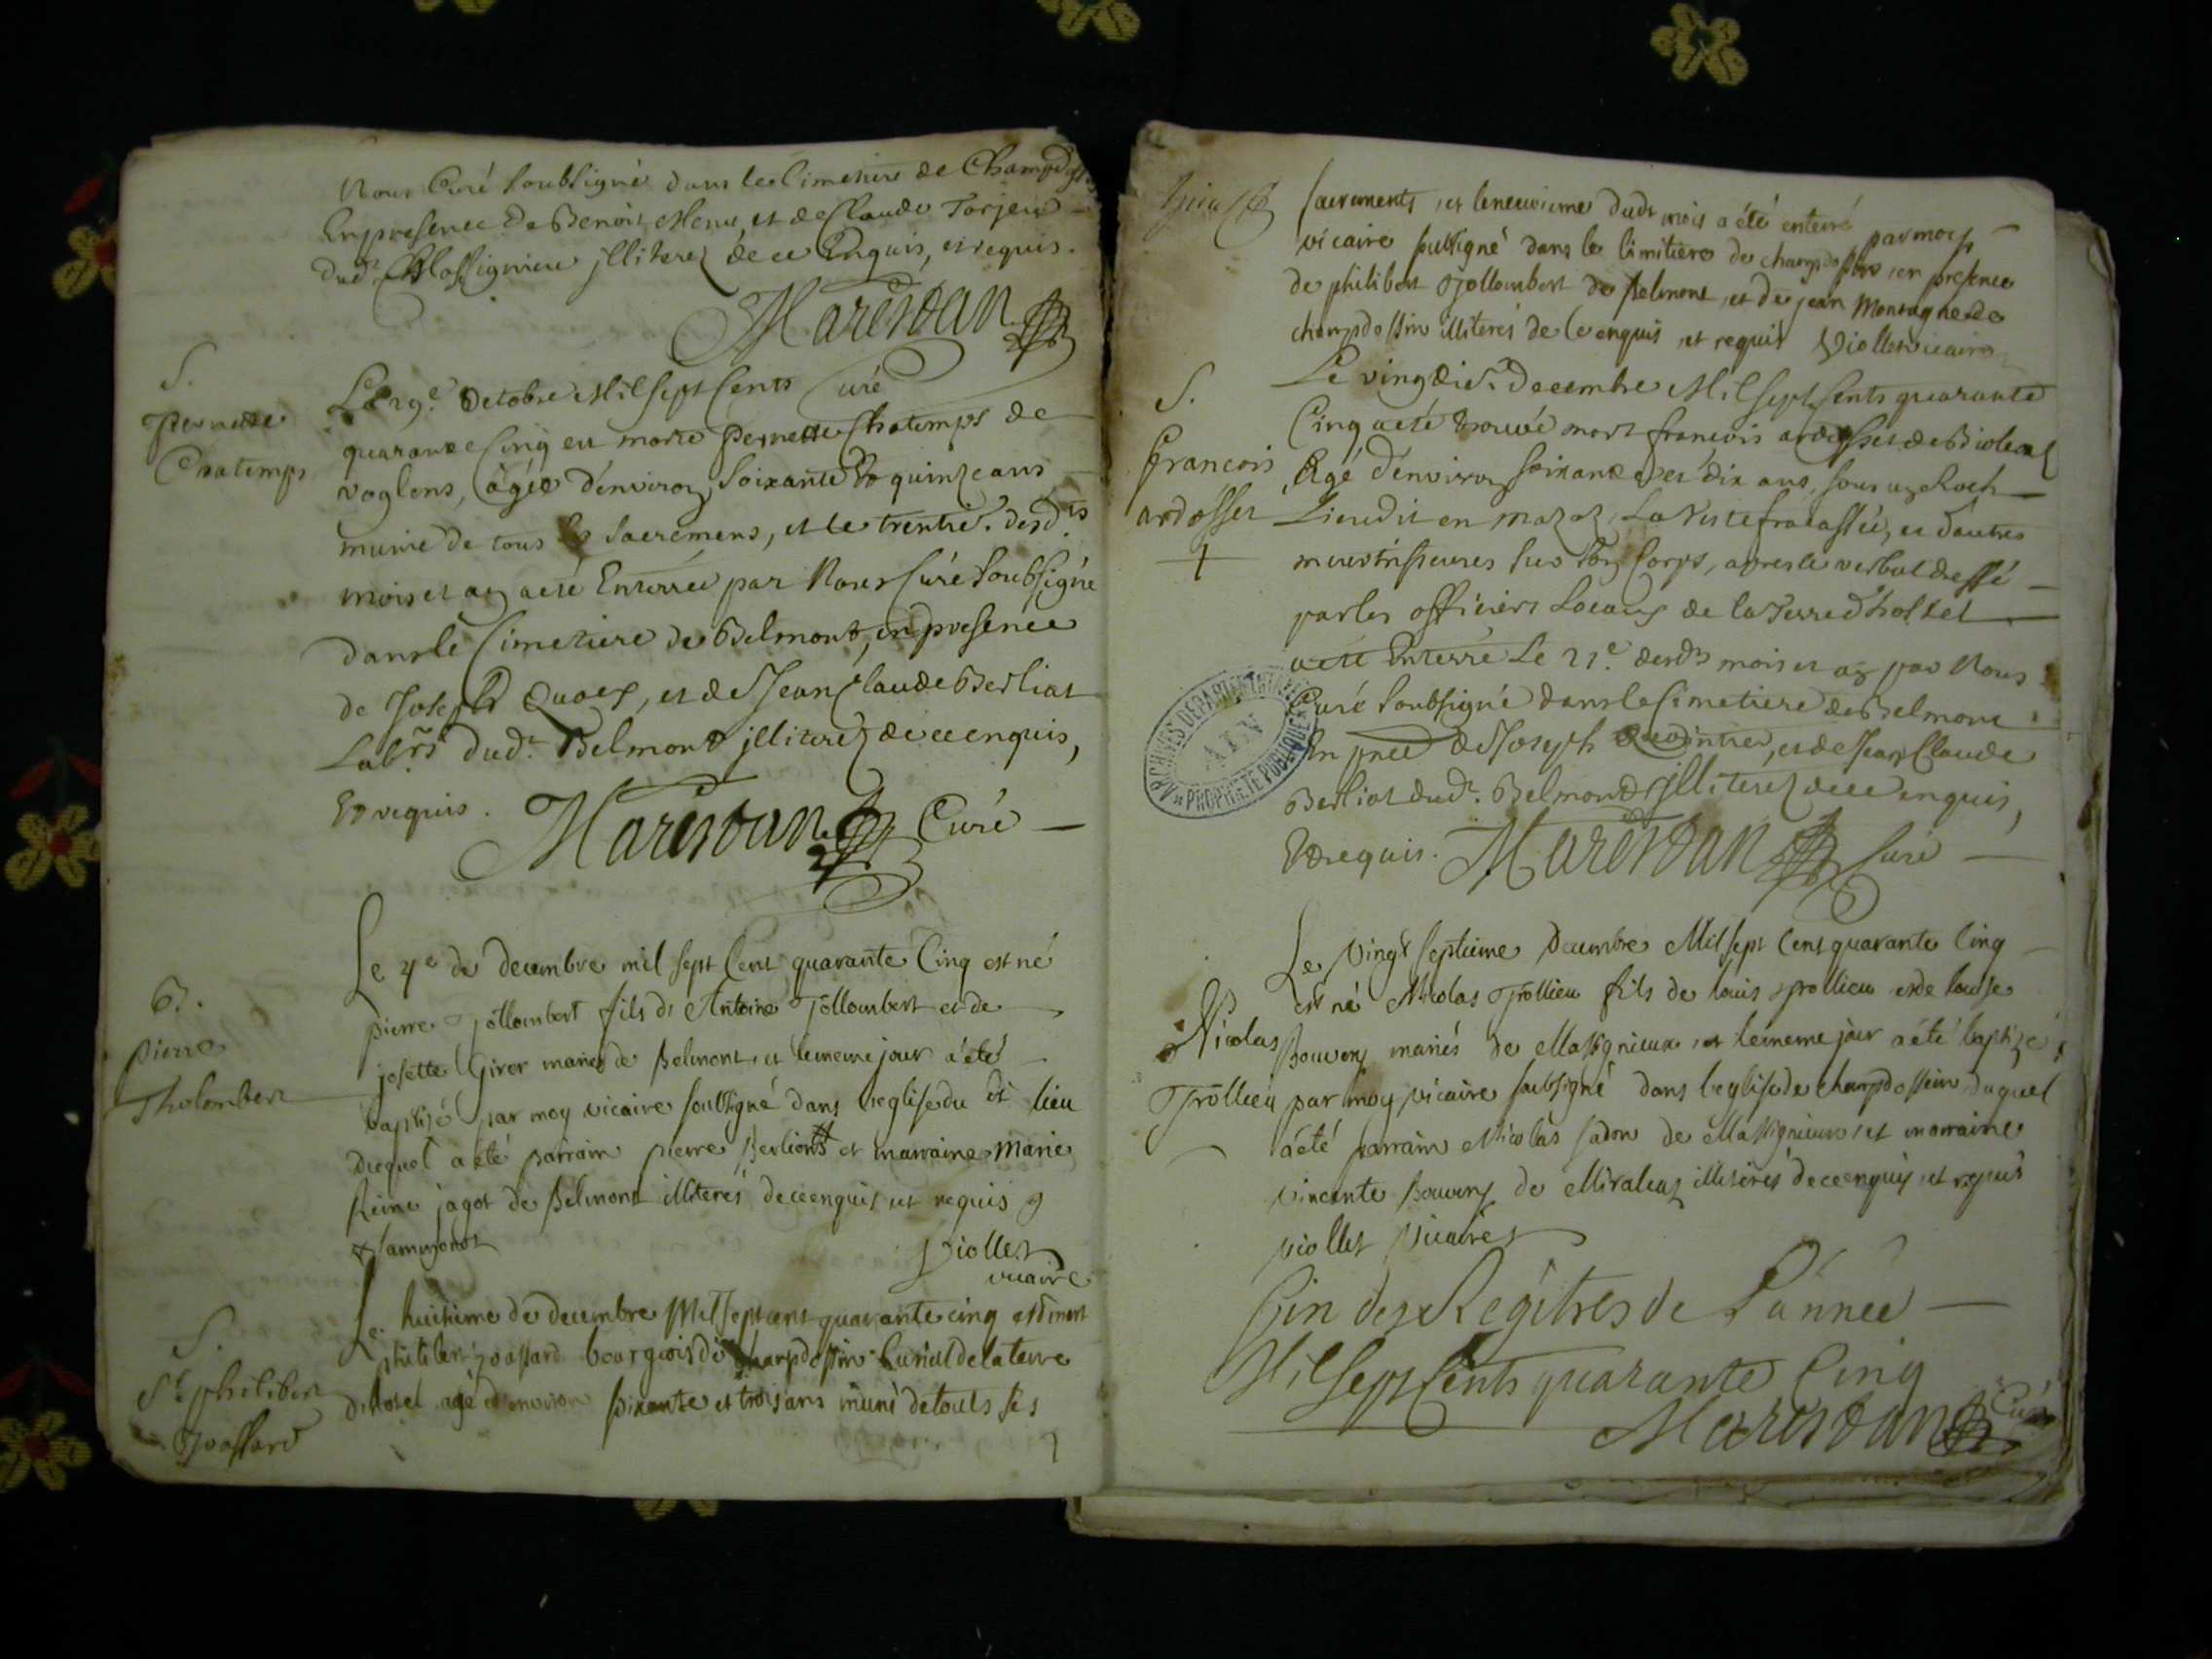 Nous Curé soubsigné dans le Cimetiere de Champd
En presence De Benoit Menu, et de Claude Torjeu
dud. Massignieu jlliterez de ce Enquis, et requis.
Marestan
Curé
S.
Pernette
Chatemps
Le 29e. Octobre Mil sept Cents
quarante Cinq est morte Pernette Chatemps de
voglens, âgée d'environ Soixante et quinze ans
munie de tous les Sacremens, et le trentie. desdts
mois et an a eté Enterrée par Nous Curé Soubsigné
dans le Cimetiere de Belmont, en presence
de Joseph, et de Jean Claude Berliat
Labrs dud. Belmont jlliterez de ce enquis,
Et requis. Marestan Curé
B.
pierre
Tholombert
Le 4e de decembre mil sept Cent quarante Cinq est né
pierre Jollombert fils de Antoine Jollombert et de
josette Giver mariés de Belmont, et le meme jour a été
baptisé par moy vicaire soussigné dans l'eglise du dt lieu
duquel a été parrain pierre Berliont et marraine Marie
Reine jagot de Belmont illiterés de ce enquis, et requis
Viollet
vicaire
S.
Sr. philibert
Joassard
Le huitieme de decembre Mil sept cent quarante cinq est mort
philibert joassard bourgeois de Champdossin Curial de la terre
d'hotel agé d'environ soixante et trois ans muni de touts ses
sacrements, et le neuvieme dudt mois a été enterré par moy
vicaire soussigné dans le Cimitiere de champdossin, en presence
de philibert Jollombert de Belmont, et de jean Montagne de
champdossin illiterés de Ce enquis, et requis Viollet vicaire
S.
francois
ardosset
Le vingtie. Decembre Mil sept Cents quarante
Cinq a eté trouvé mort francois ardosset de Bioleaz
Agé d'environ soixante et dix ans, sous un Roch
Lieudit en mazaz, La Teste fracassée, et d'autres
meurtrissures sur son Corps, apres le verbal dressé
par les officiers Locaux de la Terre d'hostel
a eté Enterré Le 21e. desdts mois et an par Nous
Curé Soubsigné dans le Cimetiere de Belmont
En pnce de Joseph, et de Jean Claude
Berliat dud. Belmont jlliterez de ce enquis,
Et requis. Marestan Curé
ARCHIVES DEPARTEMENTALES
AIN
PROPRIETE PUBLIQUE
Nicolas
Trollieu
Le Vingt septieme Decembre Mil sept Cent quarante Cinq
est né Nicolas Trollieu fils de louis trollieu et de louise
Bouvery mariés de Massignieux, et le meme jour a été baptizé
par moy vicaire soubsigné dans l'eglise de champdossin duquel
a été parrain Nicolas Sadon de Massignieux, et marraine
vincente Bouvery de Miraleaz illiterés de ce enquis, et requis
viollet vicaire
Fin des Regîtres de L'année
Mil sept Cents quarante Cinq
Marestan Curé